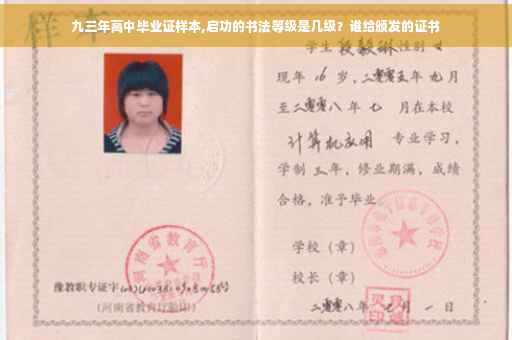 九三年高中毕业证样本,启功的书法等级是几级？谁给颁发的证书
样本
学生 段毅琳 性别 女
现年 16 岁,二零零五年 九月
至二零零八年 七 月在本校
计算机应用 专业学习,
学制 三 年, 修业期满, 成绩
合格, 准予毕业
学校（章）
校长（章）
二零零八年 七 月 一 日
河南省教育厅
豫教职专证字
(河南省教育厅验印)